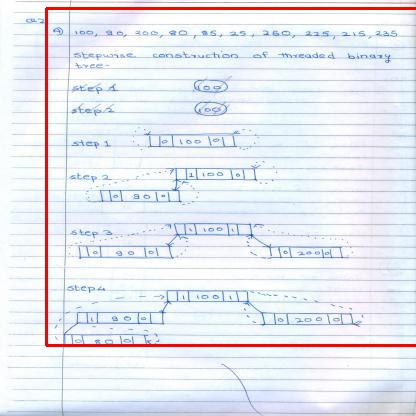 Q2
a) 100, 90, 200, 80, 85, 25, 260, 225, 215, 235
stepwise construction of threaded binary
tree-
step 1 100
step 2 100
step 1 0 100 0
step 2 1 100 0
0 90 0
step 3 1 100 1
0 90 0 0 200 0
step 4 1 100 1
1 90 0 0 200 0
0 80 0